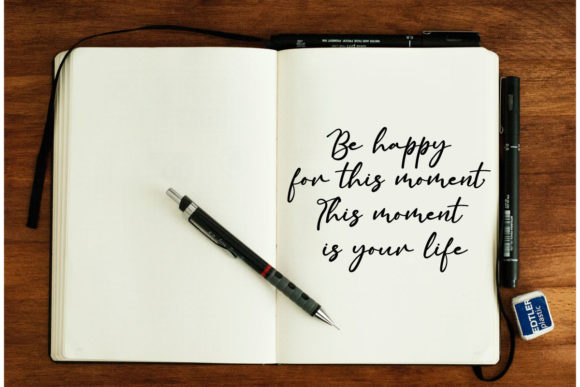 Be happy
for this moment
This moment
is your life
EDTLER
plastic